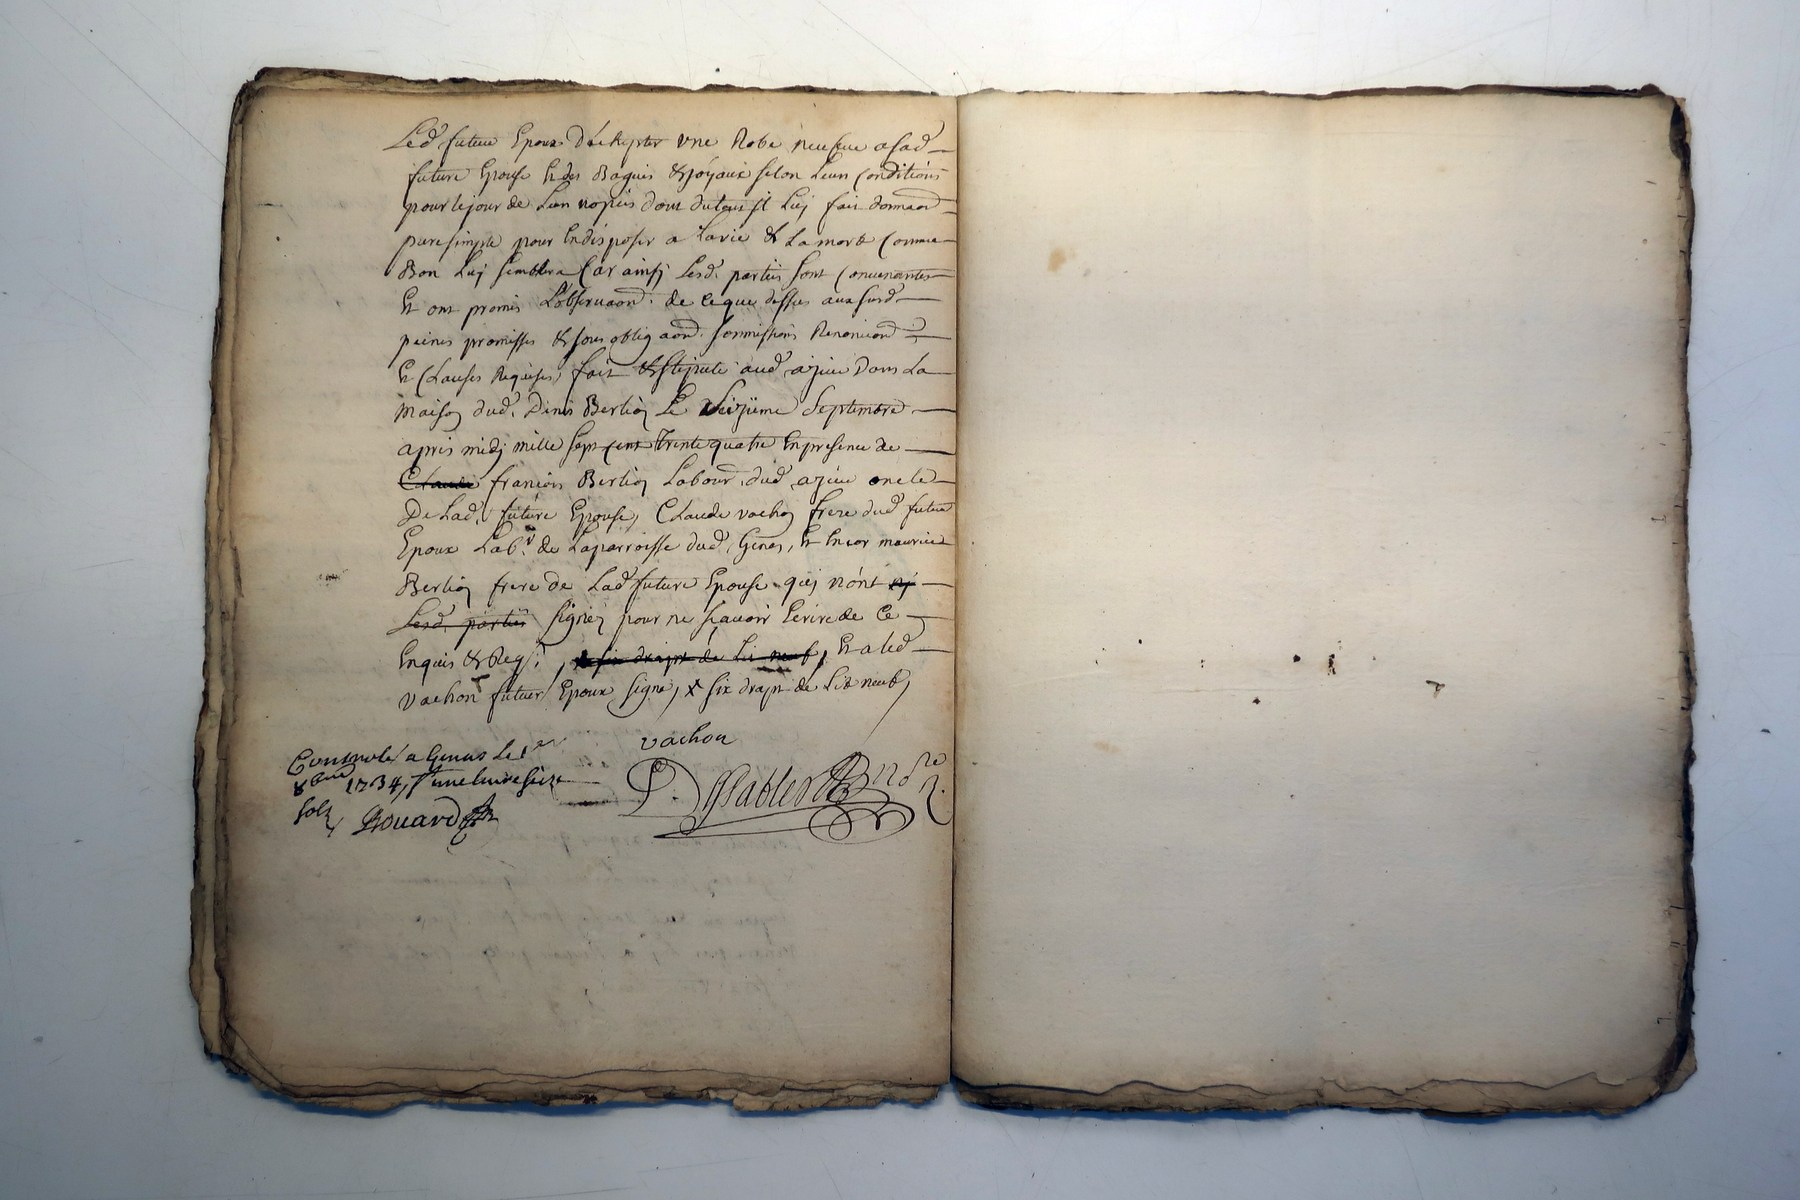 Led futeur Epoux d'achepter vne Robe neufue a sad
future Epouse Et des Bagues & joyaux selon Leur Conditions
pour le jour de Leur nopces dont du tout il Luy fait donnaond
pure simple pour En disposer a La vie & La mort Comme
Bon Luy semblera Car ainsy Lesd. parties sont Conuenantes
Et ont promis L'obseruaond. de ce que dessus aux susd
peines promisses & sous obligaond. sommissions Renonciaond
Et Clauses Requises, fait & stipulé aud ajeu dans La
maison dud. Denis Berlioz Le seizieme Septembre
apres midy mille sept cent trente quatre En presence de
Claude francois Berlioz Labour. dud ajeu oncle
De Lad. future Epouse, Claude vachon frere dud futeur
Epoux Labr. de La parroisse dud. Genas, Et Encor maurice
Berlioz frere de Lad future Epouse quy n'ont ny
Lesd. parties signez pour ne scauoir Ecrire de Ce
Enquis & Requis, & six draps de Lit neuf, Et a led
vachon futeur Epoux signé, x six draps de Lit neufs
vachon
Controlé a Genas Le 1er
8bre 1734, une livre seize
sols Rouard
Psablet No.re